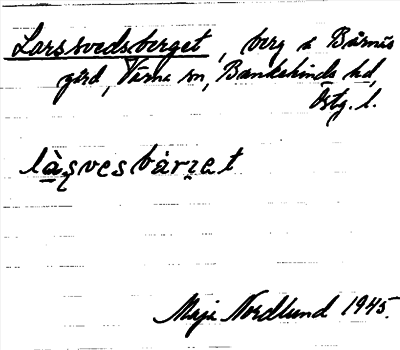 Larssvedsberget, berg å Bårnis
gård, Värna sn, Bankekinds hd,
Östg. l.
làsvesbàrzet
Maja Nordlund 1945.